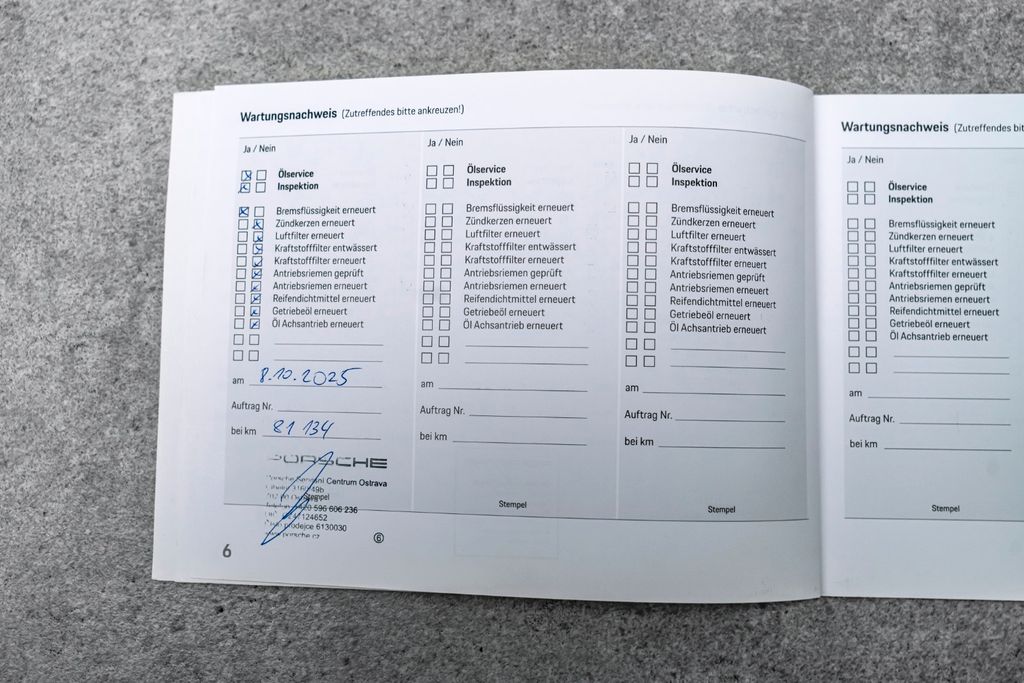 Wartungsnachweis (Zutreffendes bitte ankreuzen!)
Ja / Nein
Ölservice
Inspektion
Bremsflüssigkeit erneuert
Zündkerzen erneuert
Luftfilter erneuert
Kraftstofffilter entwässert
Kraftstofffilter erneuert
Antriebsriemen geprüft
Antriebsriemen erneuert
Reifendichtmittel erneuert
Getriebeöl erneuert
Öl Achsantrieb erneuert
am 8.10.2025
Auftrag Nr.
bei km 81 134
PORSCHE
Servisní Centrum Ostrava
Stempel
596 606 236
124652
prodejce 6130030
6
6
Ja / Nein
Ölservice
Inspektion
Bremsflüssigkeit erneuert
Zündkerzen erneuert
Luftfilter erneuert
Kraftstofffilter entwässert
Kraftstofffilter erneuert
Antriebsriemen geprüft
Antriebsriemen erneuert
Reifendichtmittel erneuert
Getriebeöl erneuert
Öl Achsantrieb erneuert
am
Auftrag Nr.
bei km
Stempel
Ja / Nein
Ölservice
Inspektion
Bremsflüssigkeit erneuert
Zündkerzen erneuert
Luftfilter erneuert
Kraftstofffilter entwässert
Kraftstofffilter erneuert
Antriebsriemen geprüft
Antriebsriemen erneuert
Reifendichtmittel erneuert
Getriebeöl erneuert
Öl Achsantrieb erneuert
am
Auftrag Nr.
bei km
Stempel
Wartungsnachweis (Zutreffendes bit
Ja / Nein
Ölservice
Inspektion
Bremsflüssigkeit erneuert
Zündkerzen erneuert
Luftfilter erneuert
Kraftstofffilter entwässert
Kraftstofffilter erneuert
Antriebsriemen geprüft
Antriebsriemen erneuert
Reifendichtmittel erneuert
Getriebeöl erneuert
Öl Achsantrieb erneuert
am
Auftrag Nr.
bei km
Stempel